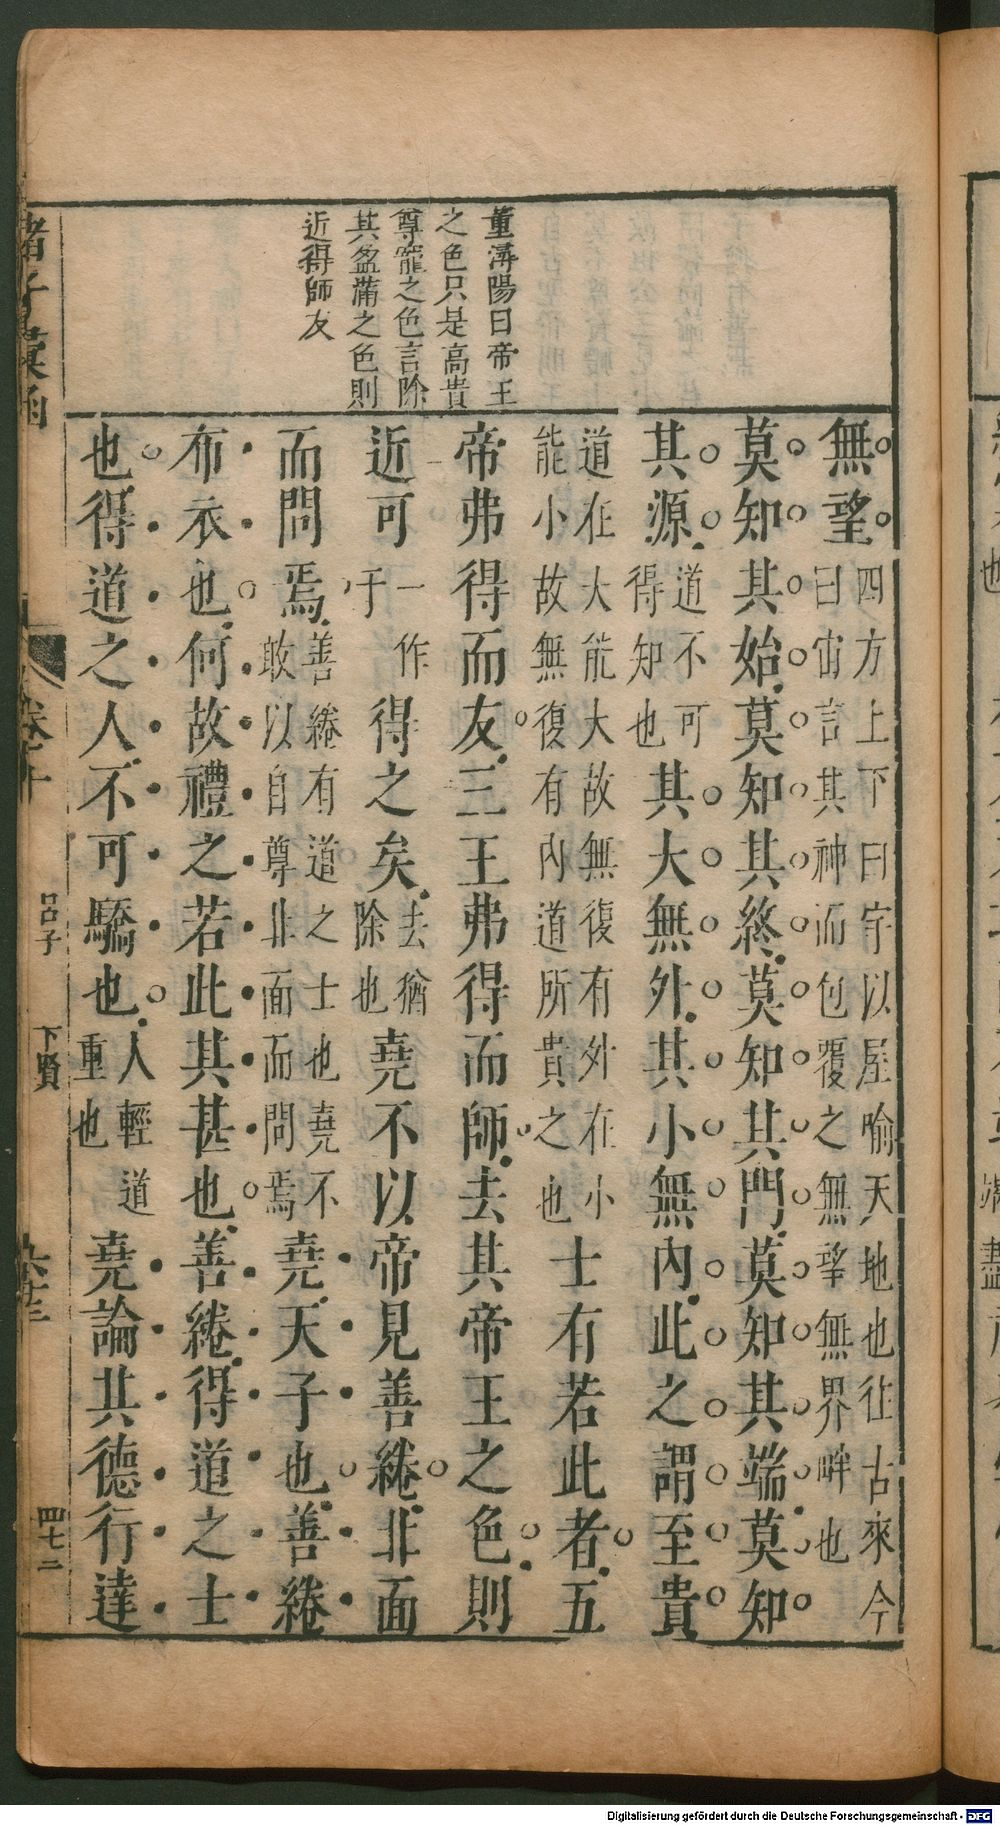 董潯陽曰帝王
之色只是高貴
尊寵之色言除
其盈滿之色則
近得師友
無望四方上下曰宇以屋喻天地也往古來今
曰宙言其神而包覆之無望無界畔也
莫知其始莫知其終莫知其門莫知其端莫知
其源道不可
得知也其大無外其小無內此之謂至貴
道在大能大故無復有外在小
能小故無復有內道所貴之也士有若此者五
帝弗得而友三王弗得而師去其帝王之色則
近可一作
于得之矣去猶
除也堯不以帝見善綣非面
而問焉善綣有道之士也堯不
敢以自尊北面而問焉堯天子也善綣
布衣也何故禮之若此其甚也善綣得道之士
也得道之人不可驕也人輕道
重也堯論其德行達
諸子彙函
卷十
呂子
下賢
四七二
Digitalisierung gefördert durch die Deutsche Forschungsgemeinschaft - DFG